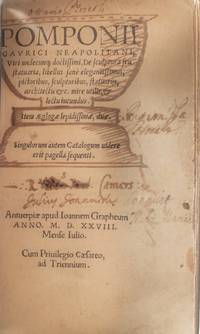 POMPONII
GAVRICI NEAPOLITANI,
Viri undecunq; doctissimi, De sculptura seu
statuaria, libellus sane elegantissimus,
pictoribus, sculptoribus, statuarijs,
architectis &c. mire utilis &
lectu iucundus.
Item æglogæ lepidissimæ, duæ.
Singulorum autem Catalogum videre
erit pagella sequenti.
Antuerpiæ apud Ioannem Grapheum
ANNO. M. D. XXVIII.
Mense Iulio.
Cum Priuilegio Cæsareo,
ad Triennium.